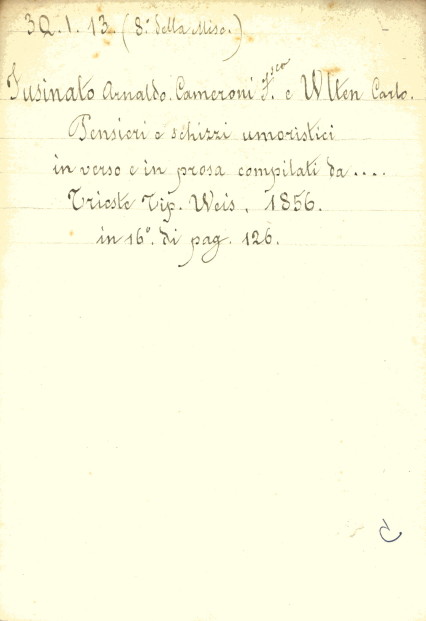 3Q.1.13. (8º della Misc.)
Fusinato Arnaldo. Cameroni F.sco e Ulten Carlo.
Pensieri e schizzi umoristici
in verso e in prosa compilati da....
Trieste Tip. Weis, 1856.
in 16º. di pag. 126.